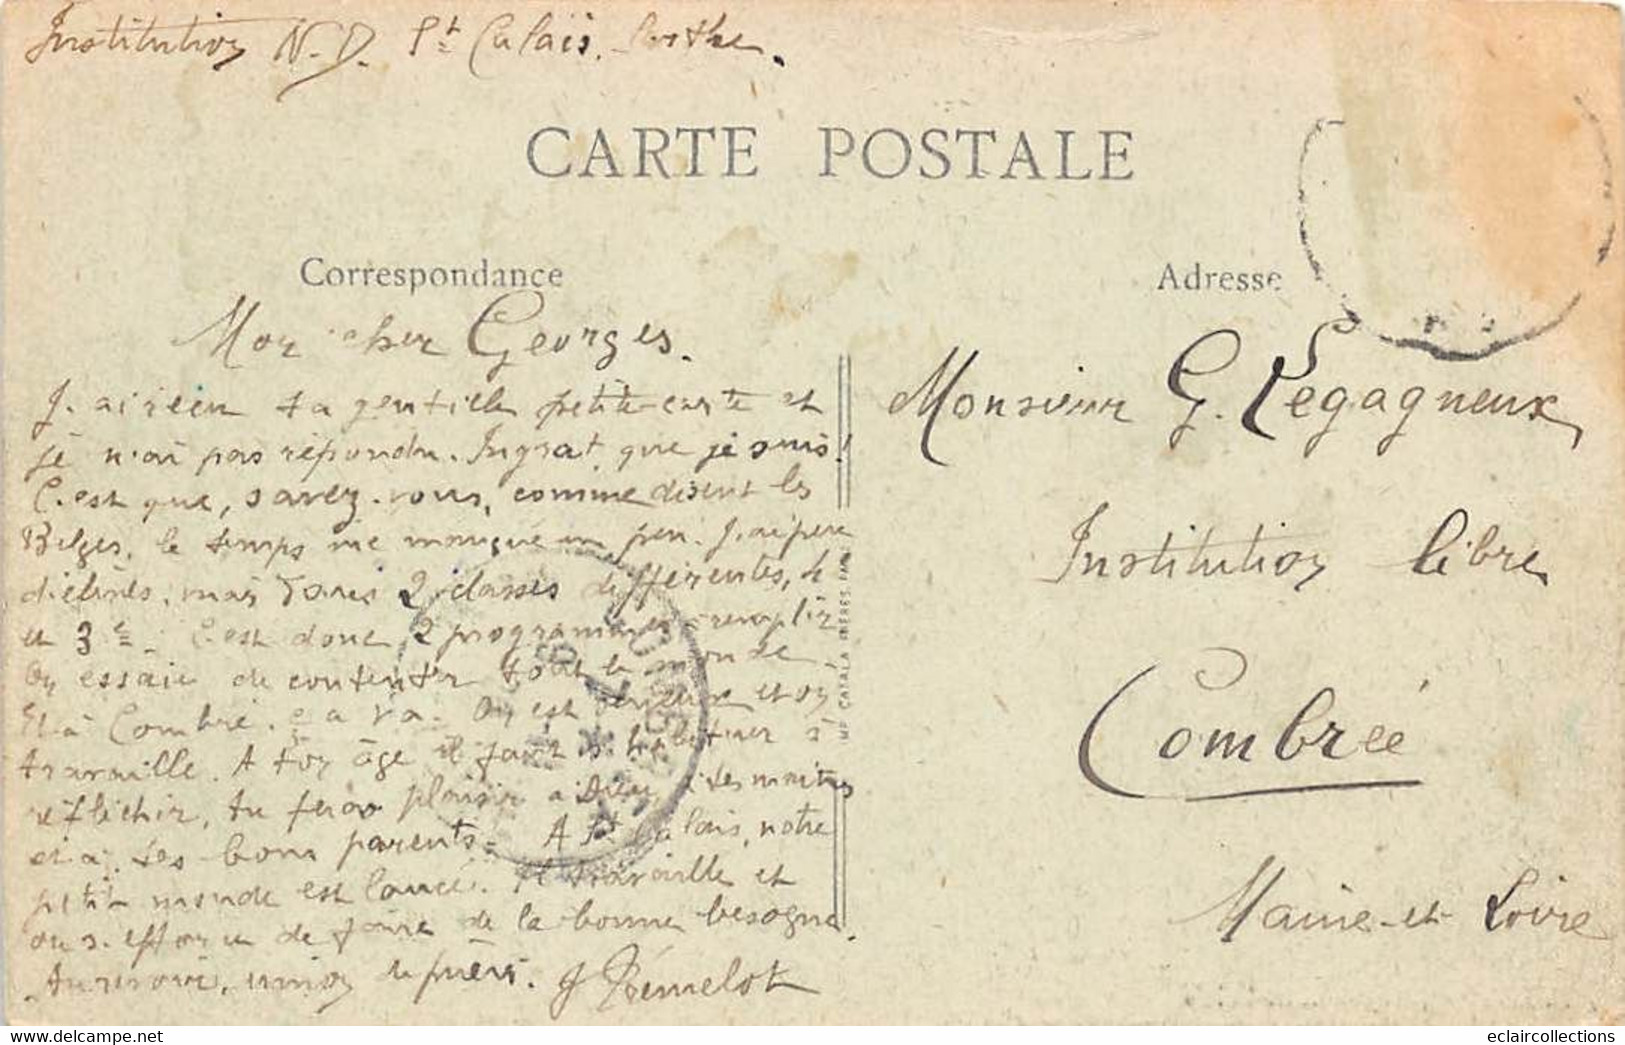 Institution N.D. St Calais. Sarthe.
CARTE POSTALE
Correspondance
Adresse
Mon cher Georges.
J'ai reçu ta gentille petite carte et
je n'ai pas répondu. Ingrat que je suis!
C'est que, savez-vous, comme disent les
Belges, le temps me manque un peu. J'ai peu
d'élèves, mais dans 2 classes différentes, 4e
et 3e. C'est donc 2 programmes à remplir
On essaie de contenter tout le monde.
Et à Combrée. ça va. On est et on
travaille. A ton âge il faut s'habituer à
réfléchir, tu feras plaisir à Dieu, à tes maîtres
et à tes bons parents. A St Calais, notre
petit monde est lancé. Il travaille et
on s'efforce de faire de la bonne besogne.
Au revoir, union de prières. J Rémelot
Monsieur G. Legagneux
Institution libre
Combrée
Maine-et-Loire
IMP. CATALA FRERES, PARIS
eclaircollections